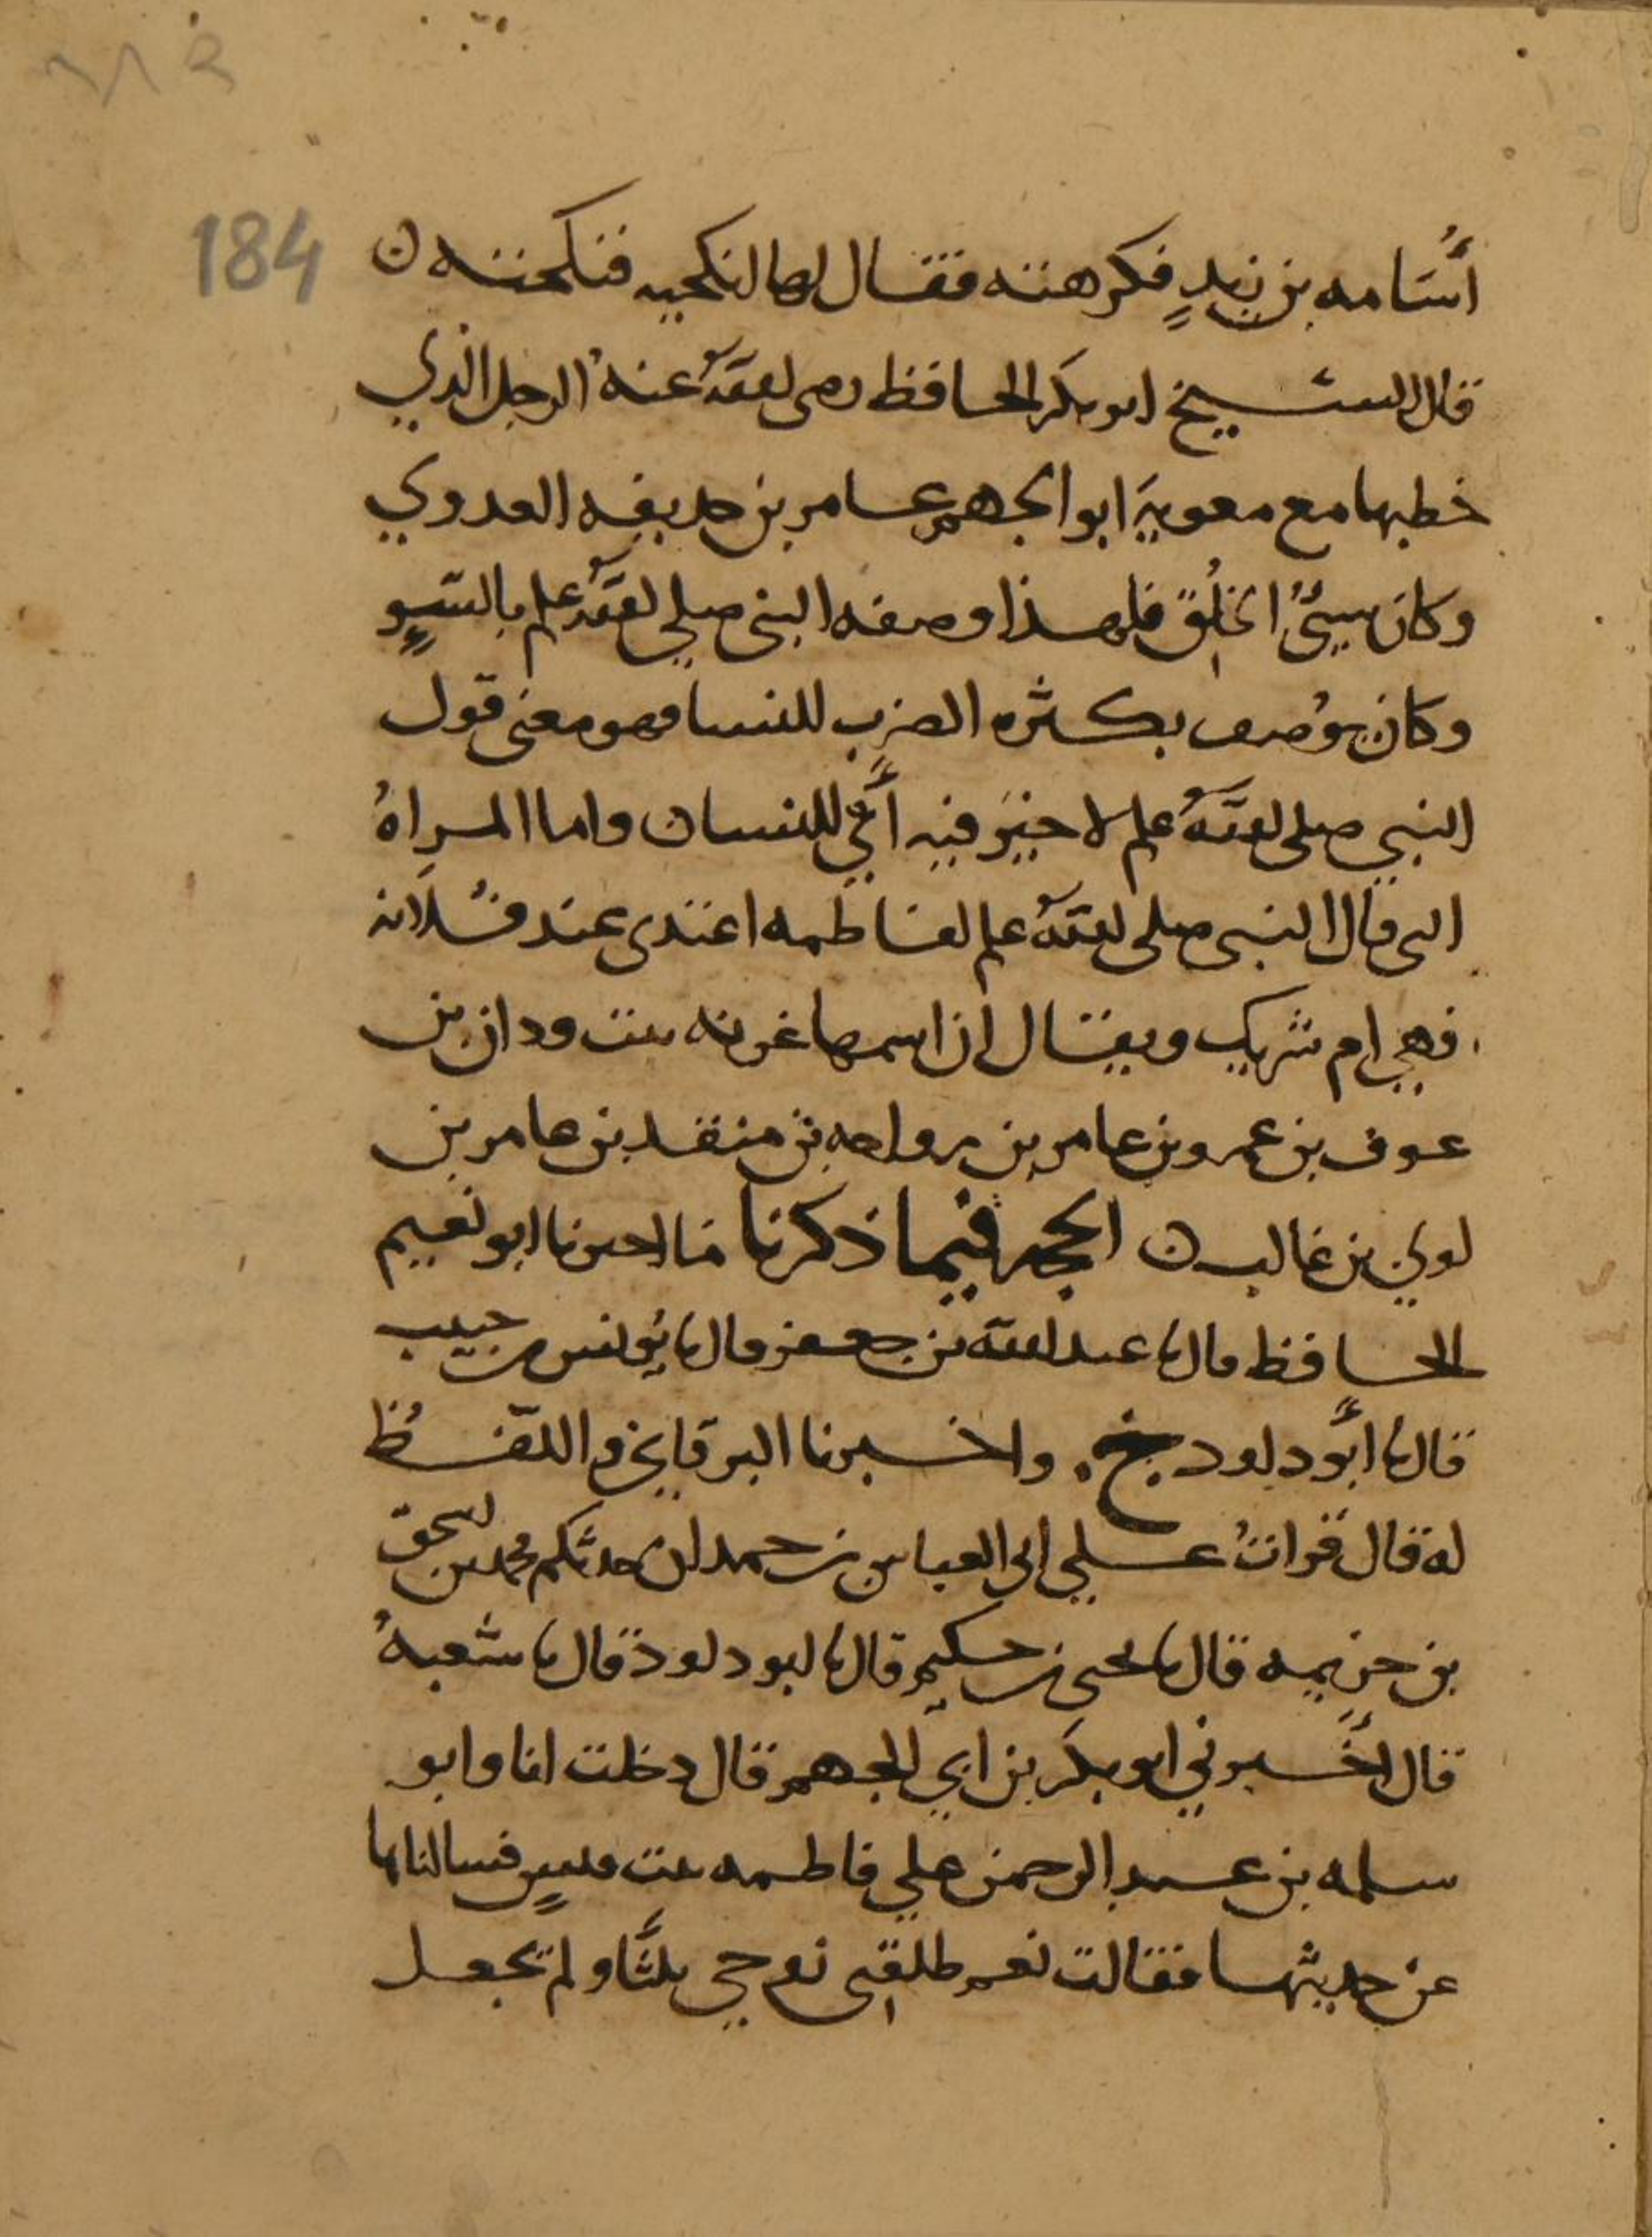 184
أُسَامه بن زيدٍ فكرهته فقال لها انكحيه فنكحته ن
قال الشيخ ابو بكر الحافظ رضى الله عنهُ الرجل الذي
خطبها مع معوية ابو الجهم عامر بن حديفه العدوي
وكان سيئُ الخلُق فلهذا وصفه النبى صلى الله علم بالسوٍ
وكان يوُصف بكثره الضرب للنسا فهو معنى قول
النبي صلى الله علم لا خير فيه أي للنسا ن واما المراهُ
التى قال النبى صلى الله علم لفاطمه اعتدى عند فُلانه
فهي ام شريك ويقال ان اسمها غزيه بنت ودان بن
عوف بن عمرو بن عامر بن رواحه بن منقد بن عامر بن
لوي بن غالب ن الحجه فيما ذكرنا ما اخبرنا ابو نعيم
الحافظ قال نا عبد الله بن جعفر قال نا يونس بن حبيب
قال نا أبو داود خ. واخبرنا البرقاني واللفُظ
له قال قراتُ على ابى العباس بن حمدان حدثكم محمد بن اسحق
بن خزيمه قال نا يحيى بن حكيم قال نا ابو داود قال نا شعبهُ
قال أخبرني ابو بكر بن ابي الجهم قال دخلت انا وابو
سلمه بن عبد الرحمن على فاطمه بنت قيسٍ فسالناها
عن حديثها فقالت نعم طلقنى زوجي ثلثًا ولم تجعل